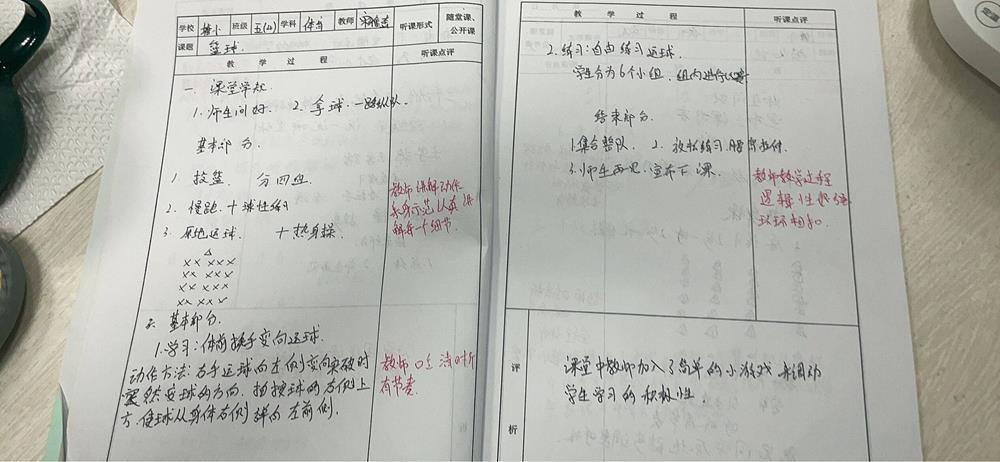 学校 小 班级 五(4) 学科 体育 教师 听课形式 随堂课、公开课
课题 篮球. 听课点评
教 学 过 程
一 课堂常规
1. 师生问好. 2. 拿球. 一路纵队.
基本部分.
1. 投篮. 分四组.
2. 慢跑. 十 球性练习
3. 原地运球. 十 热身操.
教师讲解动作
示范认真讲
解每一个细节.
△
×× ×××
×× ×××
×× ×××
×× ×××
二. 基本部分.
1.学习:体前换手变向运球.
动作方法:右手运球向左侧变向突破时
突然变球的方向. 拍按球的右侧上
方.使球从身体右侧弹向左前侧.
教师口令清晰
有节奏
教 学 过 程 听课点评
2.练习:自由练习运球.
学生分为6个小组. 组内进行
结束部分.
1.集合整队. 2. 放松练习.
3.师生再见.宣布下课.
教师教学过程
逻辑性很强
环环相扣.
评
析
课堂中教师加入了简单的小游戏 调动
学生学习的积极性.